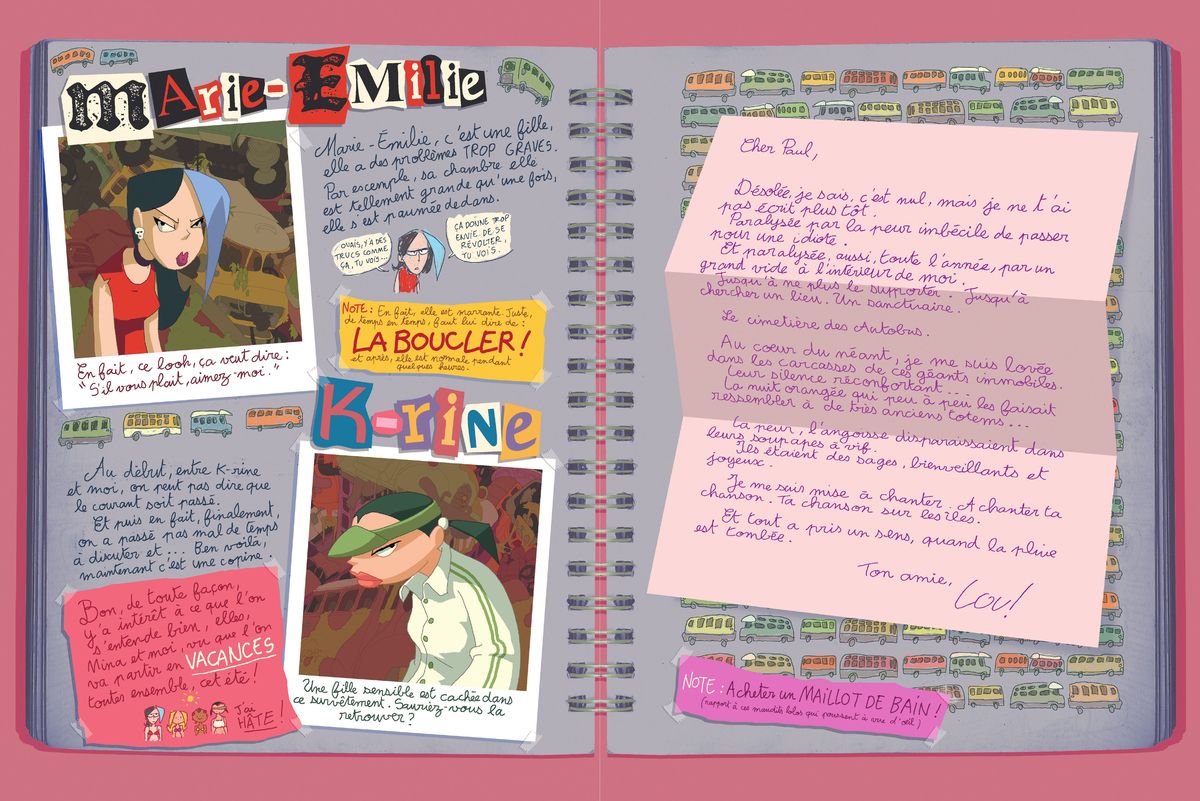 MArie-EMilie
Marie-Émilie, c'est une fille,
elle a des problèmes TROP GRAVES.
Par escemple, sa chambre elle
est tellement grande qu'une fois,
elle s'est paumée dedans.
OUAIS, Y'A DES
TRUCS COMME
ÇA, TU VOIS...
ÇA DONNE TROP
ENVIE DE SE
RÉVOLTER,
TU VOIS.
NOTE : En fait, elle est marrante. Juste,
de temps en temps, faut lui dire de :
LA BOUCLER !
et après, elle est normale pendant
quelques heures.
En fait, ce look, ça veut dire :
"S'il vous plait, aimez-moi."
K-rine
Au début, entre K-rine
et moi, on peut pas dire que
le courant soit passé.
Et puis en fait, finalement,
on a passé pas mal de temps
à discuter et... Ben voilà,
maintenant c'est une copine.
Bon, de toute façon,
y'a intérêt à ce que l'on
s'entende bien, elles,
Mina et moi, vu que l'on
va partir en VACANCES
toutes ensemble, cet été !
J'ai
HÂTE !
Une fille sensible est cachée dans
ce survêtement. Sauriez-vous la
retrouver ?
Cher Paul,
Désolée, je sais, c'est nul, mais je ne t'ai
pas écrit plus tôt.
Paralysée par la peur imbécile de passer
pour une idiote.
Et paralysée, aussi, toute l'année, par un
grand vide à l'intérieur de moi.
Jusqu'à ne plus le supporter. Jusqu'à
chercher un lieu. Un sanctuaire.
Le cimetière des Autobus.
Au cœur du néant, je me suis lovée
dans les carcasses de ces géants immobiles.
Leur silence réconfortant...
La nuit orangée qui peu à peu les faisait
ressembler à de très anciens totems...
La peur, l'angoisse disparaissaient dans
leurs soupapes à vif.
Ils étaient des sages, bienveillants et
joyeux.
Je me suis mise à chanter. A chanter ta
chanson. Ta chanson sur les îles.
Et tout a pris un sens, quand la pluie
est tombée.
Ton amie,
Lou!
NOTE : Acheter un MAILLOT DE BAIN !
(rapport à ces maudits lolos qui poussent à vue d'œil)